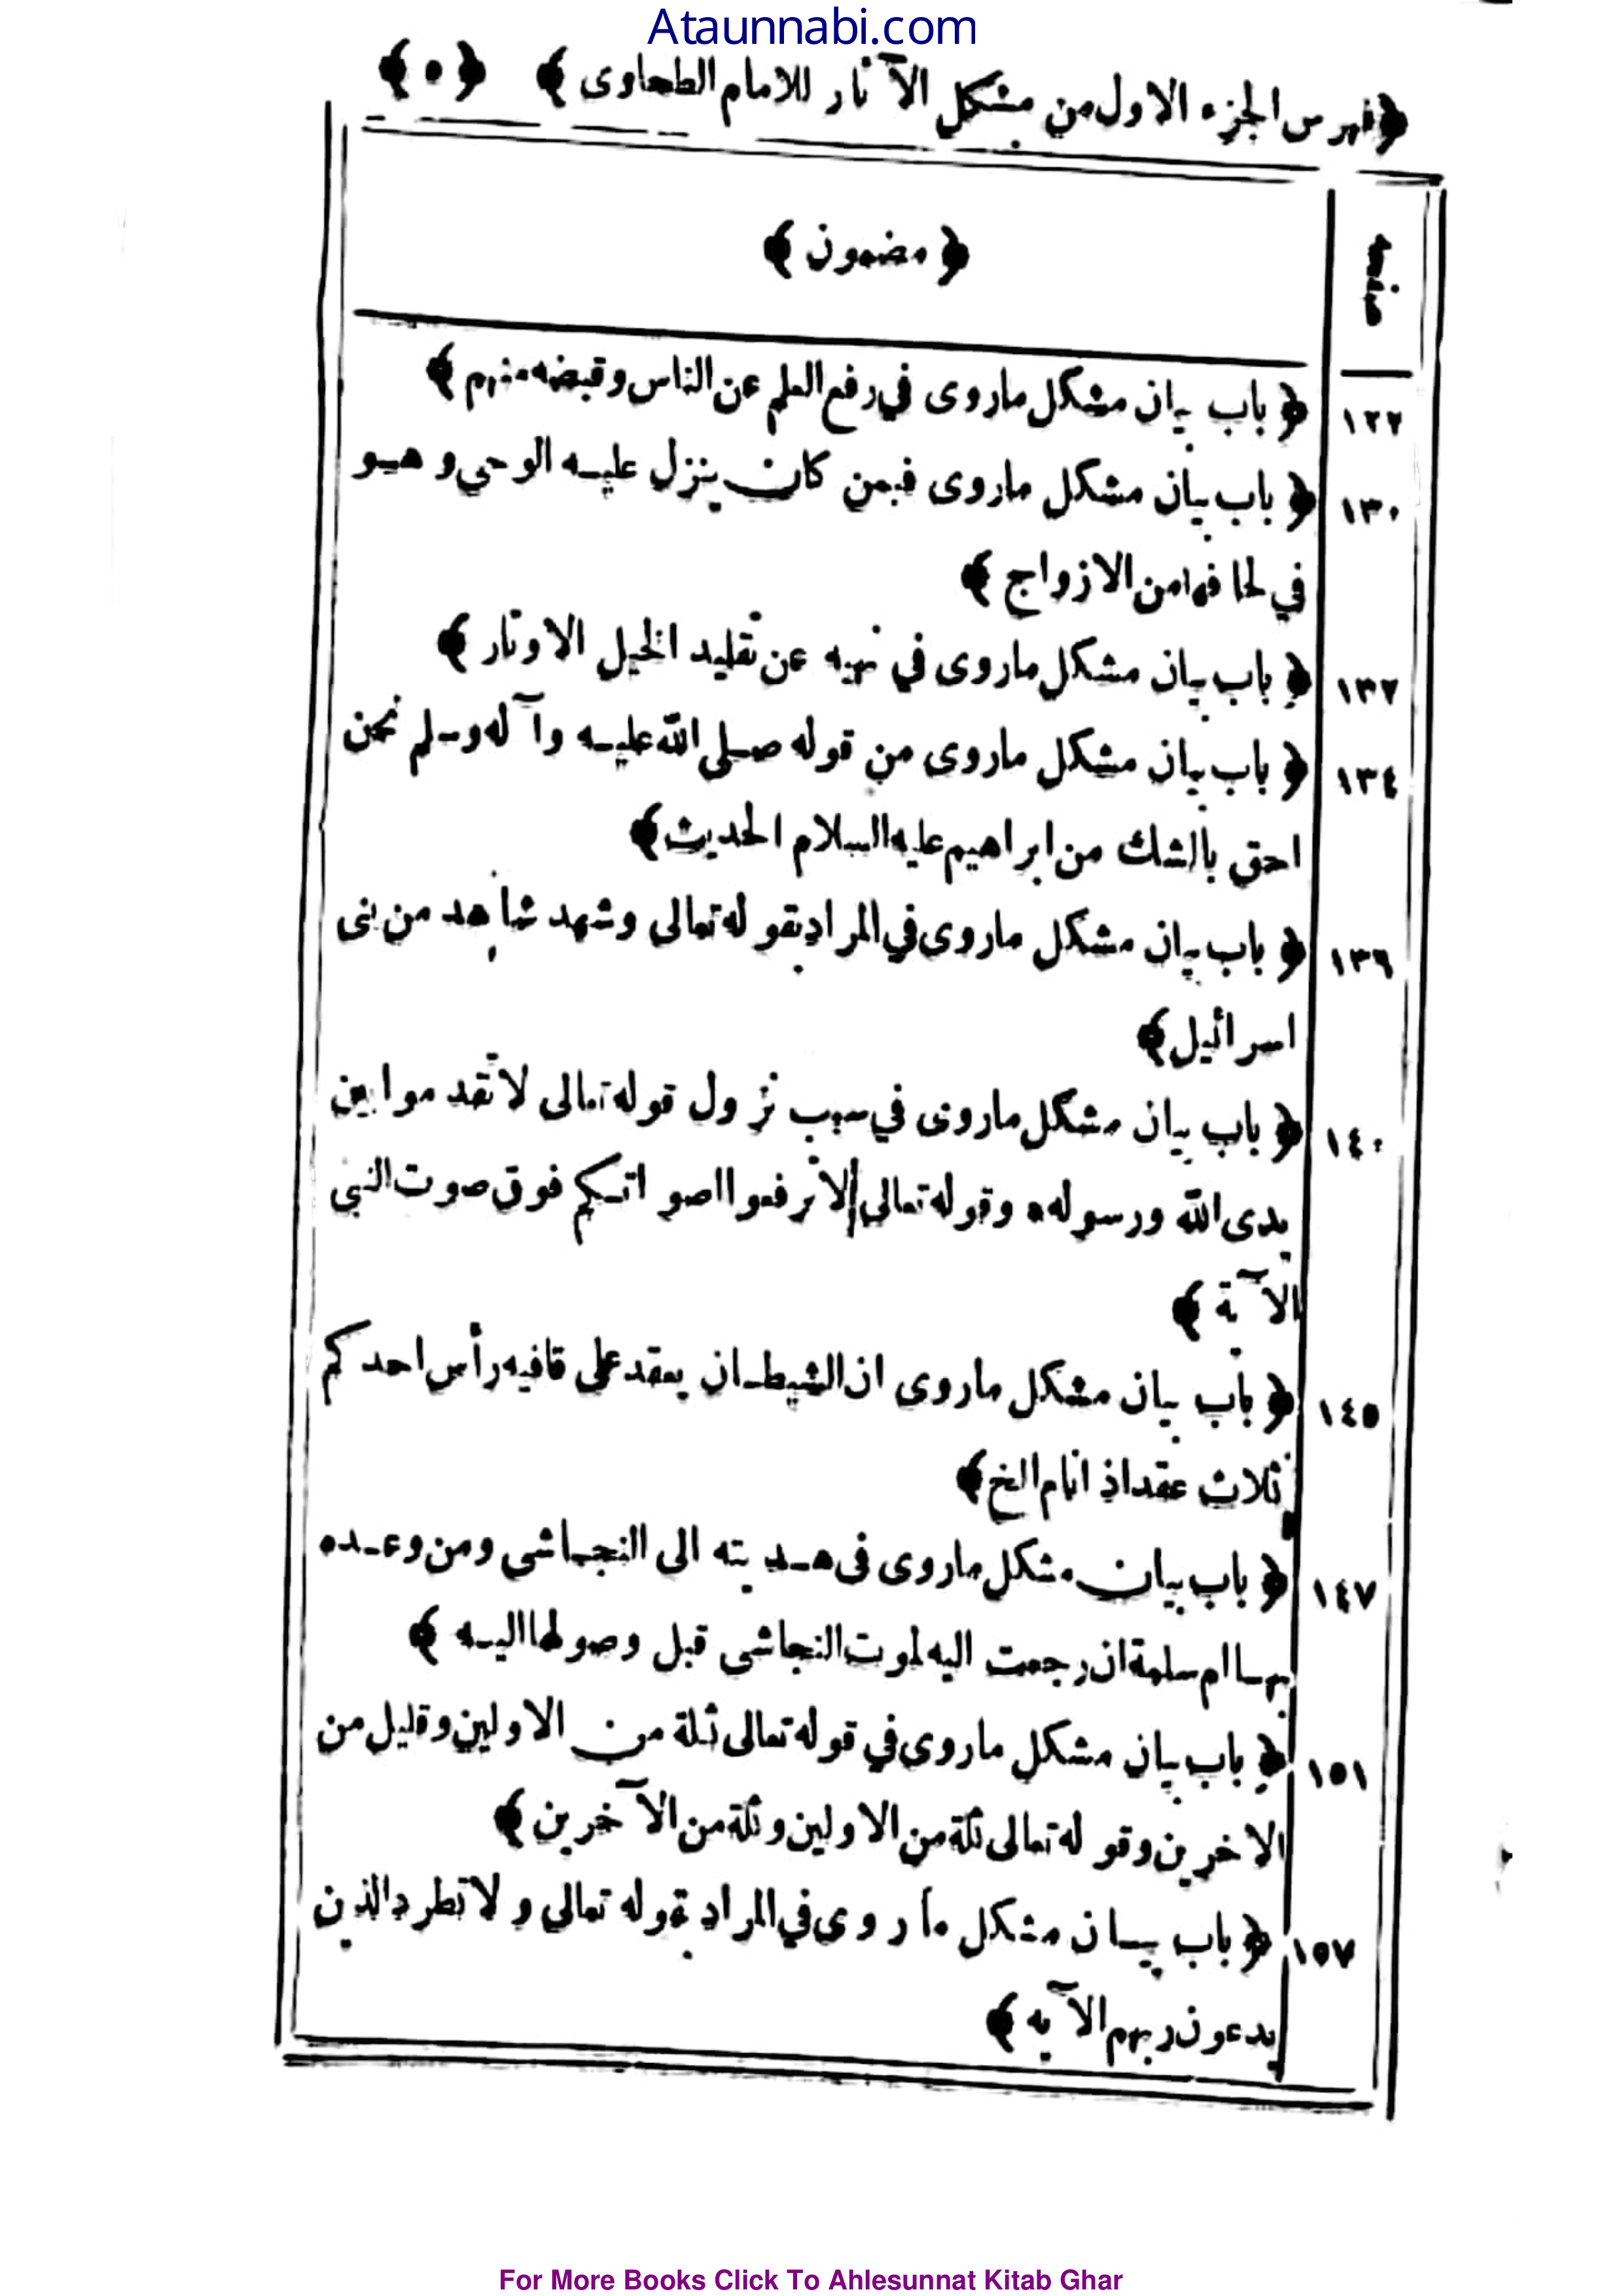 Ataunnabi.com
﴿فهرس الجزء الاول من مشكل الآثار للامام الطحاوى﴾ ﴿٥﴾
صفحه ﴿مضمون﴾
١٢٢ ﴿باب بيان مشكل ماروى في رفع العلم عن الناس وقبضه منهم﴾
١٣٠ ﴿باب بيان مشكل ماروى فيمن كان ينزل عليه الوحي وهو
في لحافها من الازواج﴾
١٣٢ ﴿باب بيان مشكل ماروى في نهيه عن تقليد الخيل الاوتار﴾
١٣٤ ﴿باب بيان مشكل ماروى من قوله صلى الله عليه وآله وسلم نحن
احق بالشك من ابراهيم عليه السلام الحديث﴾
١٣٦ ﴿باب بيان مشكل ماروى في المراد بقوله تعالى وشهد شاهد من بنى
اسرائيل﴾
١٤٠ ﴿باب بيان مشكل ماروى في سبب نزول قوله تعالى لا تقدموا بين
يدى الله ورسوله وقوله تعالى لا ترفعوا اصواتكم فوق صوت النبى
الآية﴾
١٤٥ ﴿باب بيان مشكل ماروى ان الشيطان يعقد على قافيه رأس احدكم
ثلاث عقد اذا نام الخ﴾
١٤٧ ﴿باب بيان مشكل ماروى فى هديته الى النجاشى ومن وعده
بها ام سلمة ان رجعت اليه لموت النجاشى قبل وصولها اليه﴾
١٥١ ﴿باب بيان مشكل ماروى في قوله تعالى ثلة من الاولين وقليل من
الاخرين وقوله تعالى ثلة من الاولين وثلة من الآخرين﴾
١٥٧ ﴿باب بيان مشكل ماروى في المراد بقوله تعالى ولا تطرد الذين
يدعون ربهم الآيه﴾
For More Books Click To Ahlesunnat Kitab Ghar